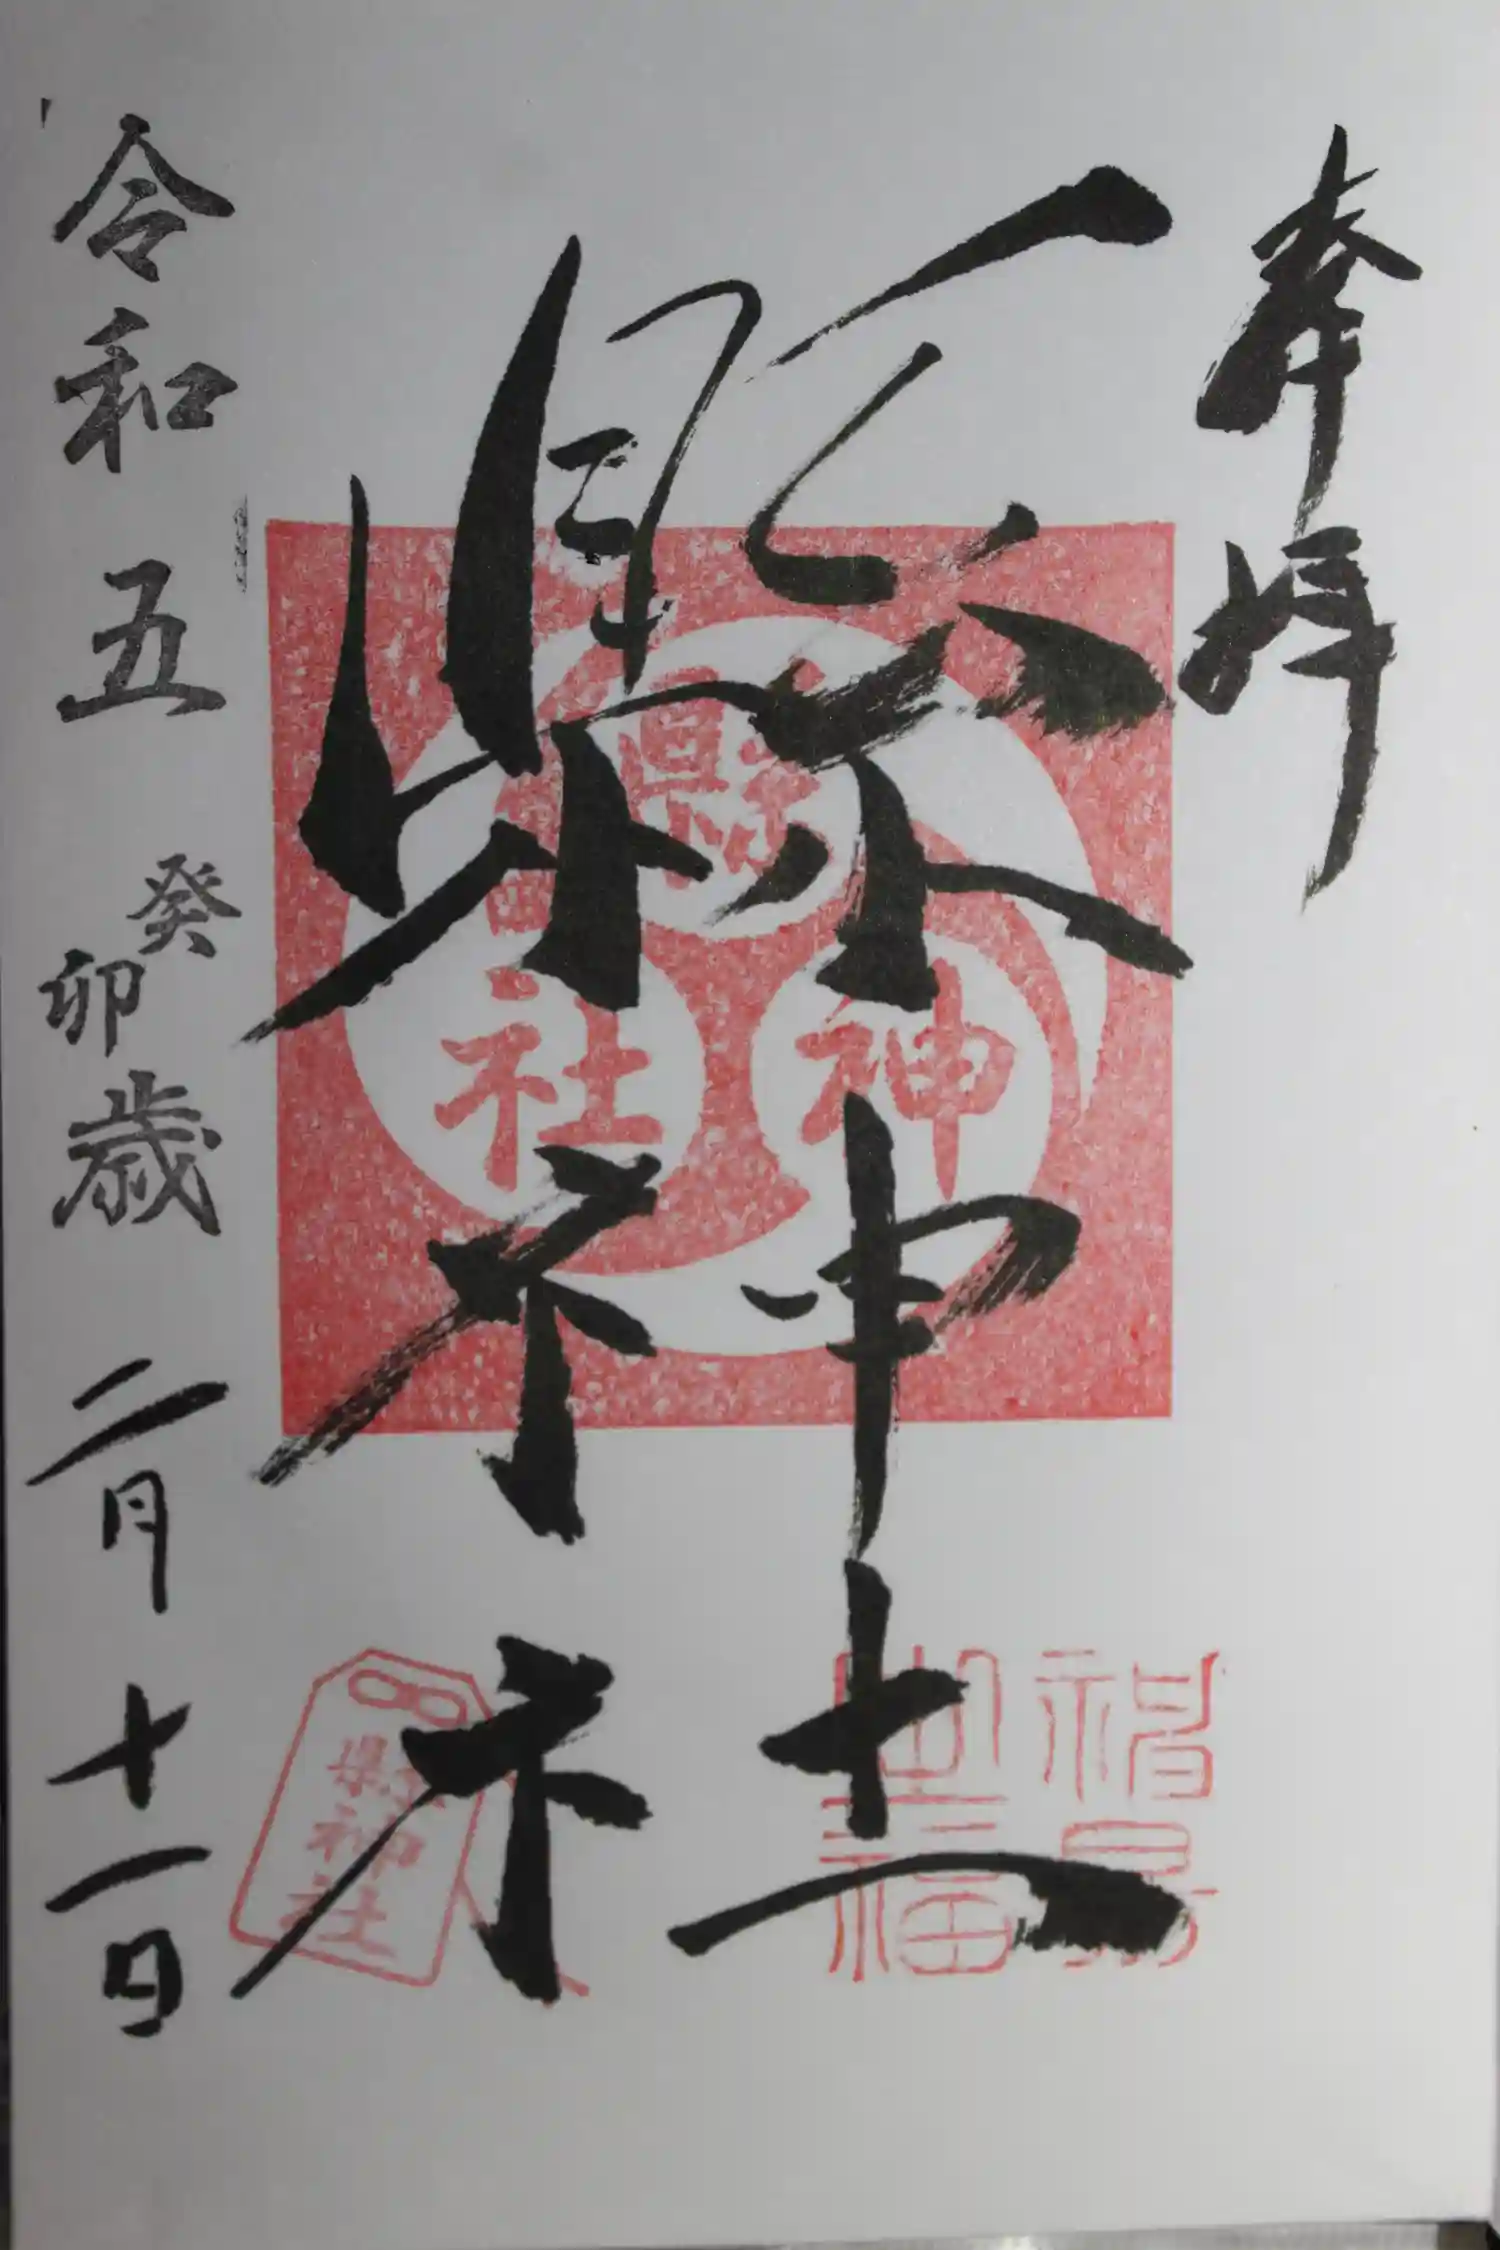 奉拝
縣神社
縣
神
社
縣神社
令和五癸卯歳二月十一日